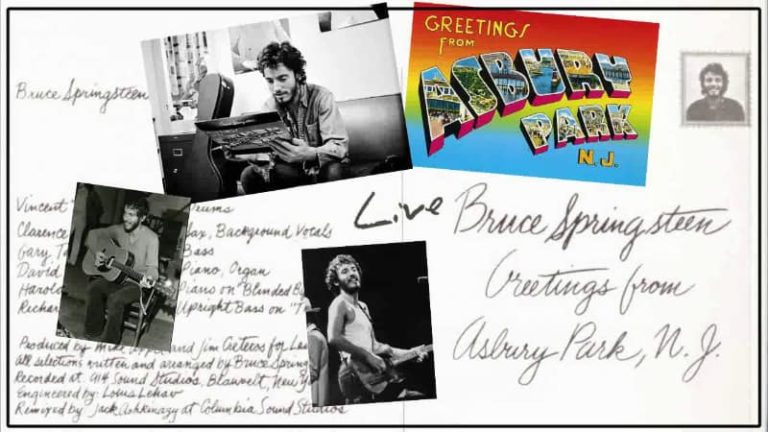 Bruce Springsteen
GREETINGS
FROM
ASBURY
PARK
N.J.
Vincent
Clarence Sax, Background Vocals
Gary Bass
David Piano, Organ
Harold Piano on "Blinded By
Richard Upright Bass on "
Produced by Mike Appel and Jim Cretecos for
All selections written and arranged by Bruce
Recorded at 914 Sound Studios, Blauvelt, New
Engineered by: Louis Lahav
Remixed by: Jack Ashkinazy at Columbia Sound Studios
Live Bruce Springsteen
Greetings from
Asbury Park, N. J.